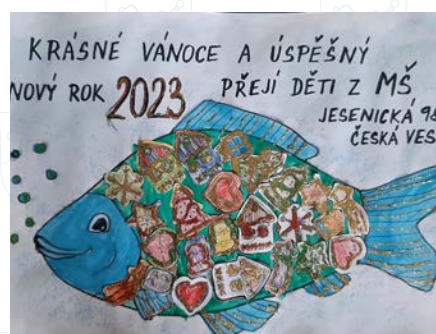 KRÁSNÉ VÁNOCE A ÚSPĚŠNÝ
NOVÝ ROK 2023 PŘEJÍ DĚTI Z MŠ
JESENICKÁ 98
ČESKÁ VES